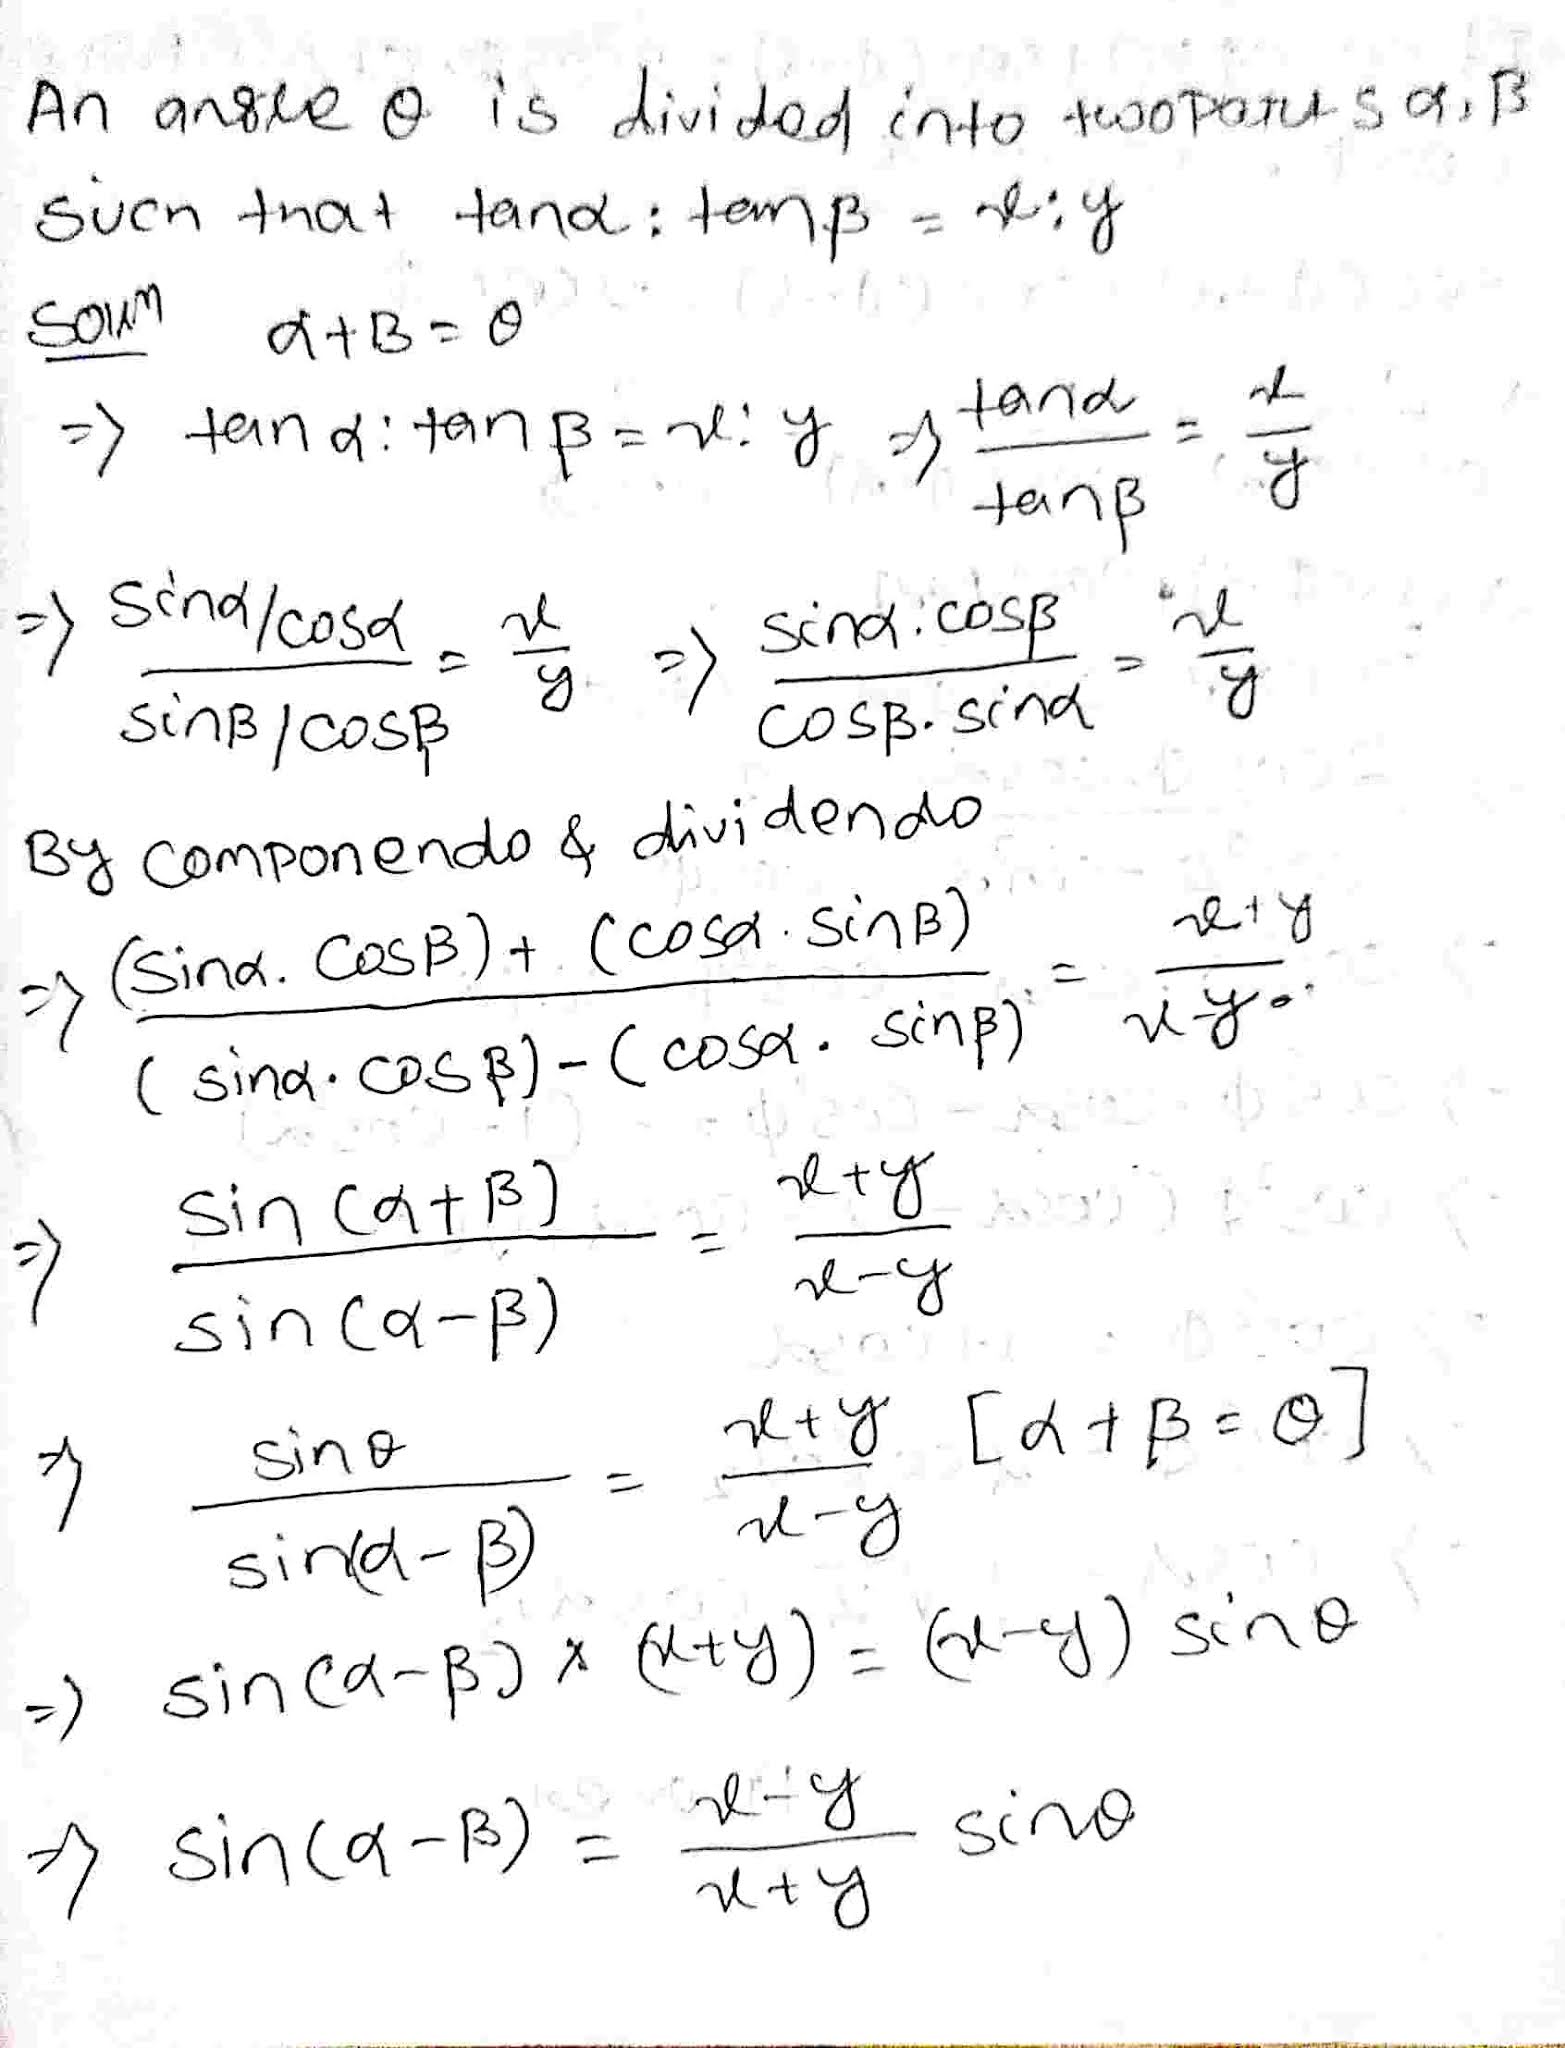 An angle θ is divided into two parts α, β
such that tanα : tanβ = x : y
Solun α+B = θ
=> tanα : tanβ = x : y => tanα/tanβ = x/y
=> (sinα/cosα)/(sinβ/cosβ) = x/y => (sinα.cosβ)/(cosβ.sinα) = x/y
By componendo & dividendo
=> ((sinα. cosβ) + (cosα. sinβ))/((sinα. cosβ) - (cosα. sinβ)) = (x+y)/(x-y)
=> sin(α+β)/sin(α-β) = (x+y)/(x-y)
=> sinθ/sin(α-β) = (x+y)/(x-y) [α+β = θ]
=> sin(α-β) × (x+y) = (x-y) sinθ
=> sin(α-β) = (x-y)/(x+y) sinθ